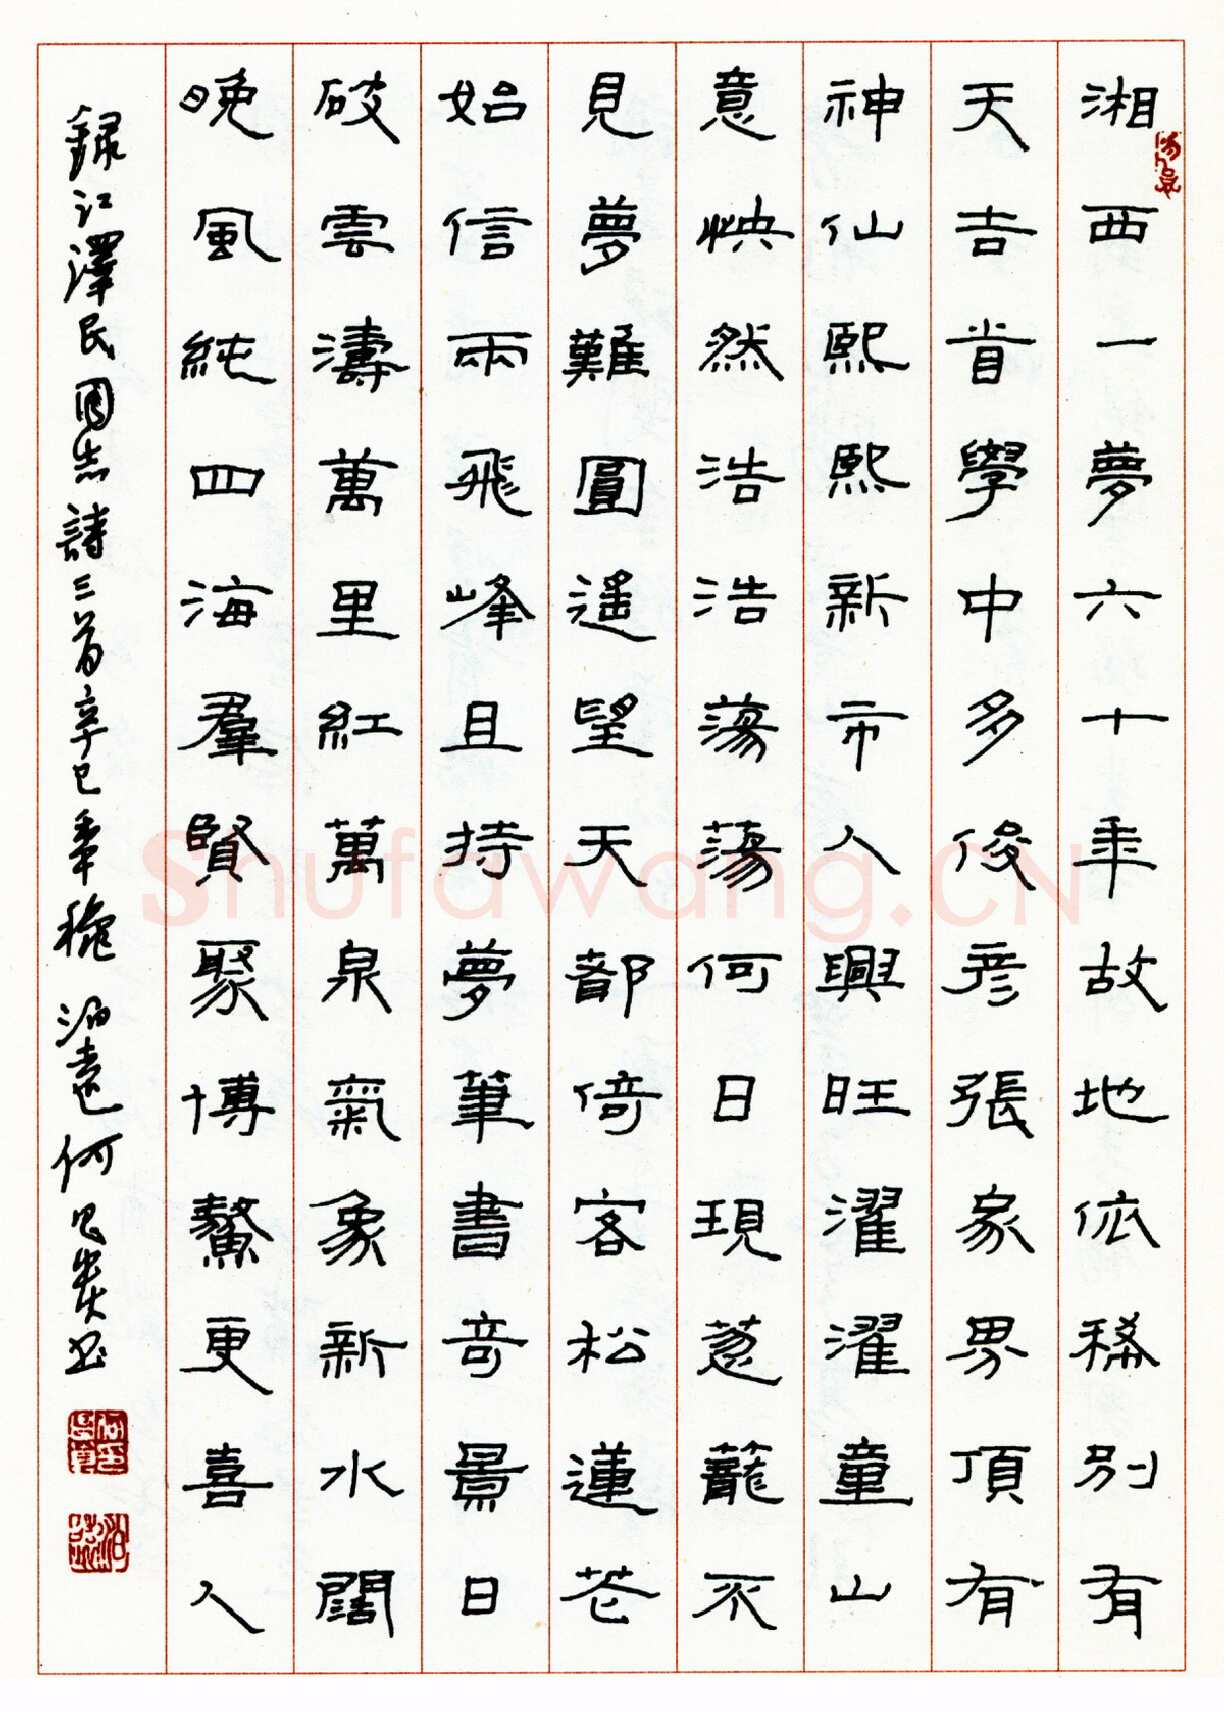 湘西一夢六十年故地依稀別有
天吉首學中多俊彥張家界頂有
神仙熙熙新市人興旺濯濯童山
意怏然浩浩蕩蕩何日現蔥蘢不
見夢難圓遙望天都倚客松蓮花
始信兩飛峰且持夢筆書奇景日
破雲濤萬里紅萬泉氣象新水闊
晚風純四海羣賢聚博鰲更喜人
錄江澤民同志詩三首辛巳年穐 泊遠何書
Shufawang.CN